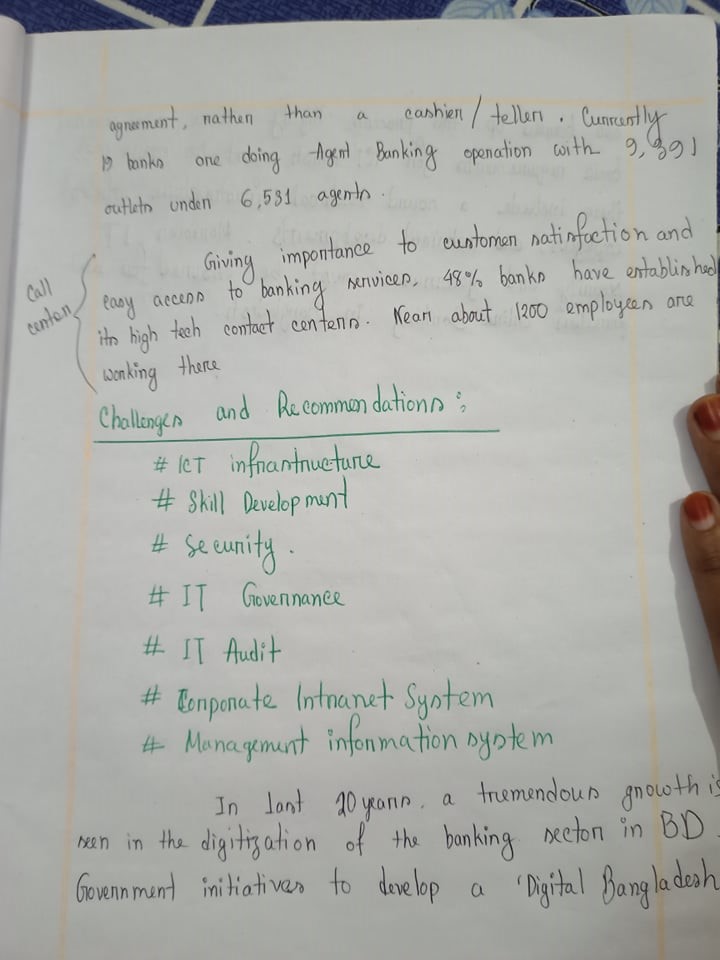 agreement, rather than a cashier/teller. Currently
19 banks are doing Agent Banking operation with 9,391
outlets under 6,531 agents.
Giving importance to customer satisfaction and
easy access to banking services, 48% banks have established
its high tech contact centers. Near about 1200 employees are
working there
Call
center
Challenges and Recommendations:
# ICT infrastructure
# Skill Development
# Security.
# IT Governance
# IT Audit
# Corporate Intranet System
# Management information system
In last 20 years, a tremendous growth is
seen in the digitization of the banking sector in BD.
Government initiatives to develop a 'Digital Bangladesh